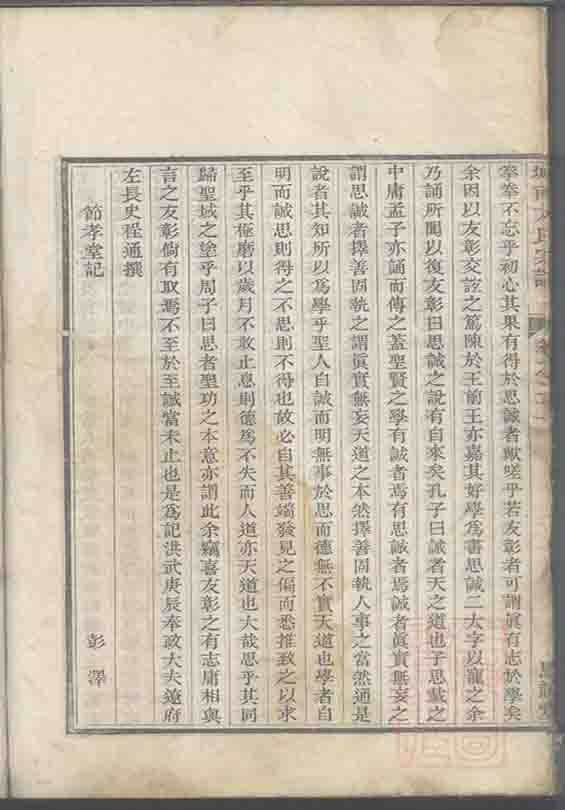 拳拳不忘乎初心其果有得於思誠者歟嗟乎若友彰者可謂眞有志於學矣
余因以友彰交誼之篤陳於王前王亦嘉其好學爲書思誠二大字以寵之余
乃誦所聞以復友彰曰思誠之說有自來矣孔子曰誠者天之道也子思載之
中庸孟子亦誦而傳之蓋聖賢之學有誠者焉有思誠者焉誠者眞實無妄之
謂思誠者擇善固執之謂眞實無妄天道之本然擇善固執人事之當然通是
說者其知所以爲學乎聖人自誠而明無事於思而德無不實天道也學者自
明而誠思則得之不思則不得也故必自其善端發見之偏而悉推致之以求
至乎其極磨以歲月不敢止息則德爲不失而人道亦天道也大哉思乎其同
歸聖域之塗乎周子曰思者聖功之本意亦謂此余竊喜友彰之有志庸相與
言之友彰倘有取焉不至於至誠當未止也是爲記洪武庚辰奉政大夫遼府
左長史程通撰
節孝堂記
彭澤